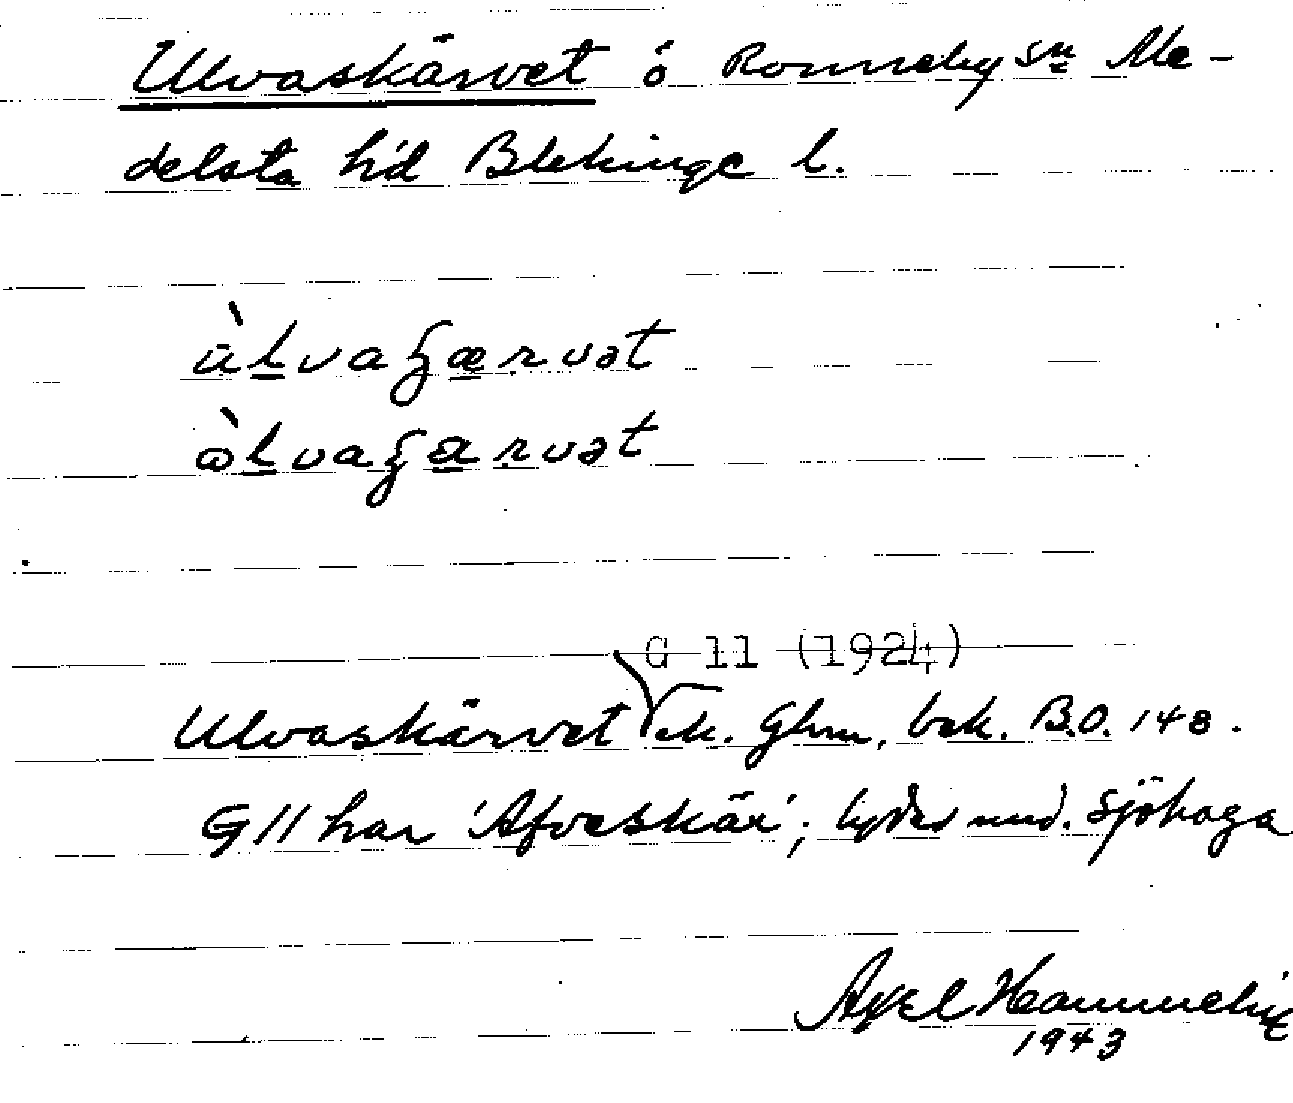 Ulvaskärvet ö Ronneby sn Me-
delsta h'd Blekinge l.
ùlvaʂærvət
òlvaʂarvət
G 11 (1924)
Ulvaskärvet ek. Ghm, bek. B.O. 148.
G 11 har 'Afveskär'; lydes und. Sjöhaga
Axel
1943